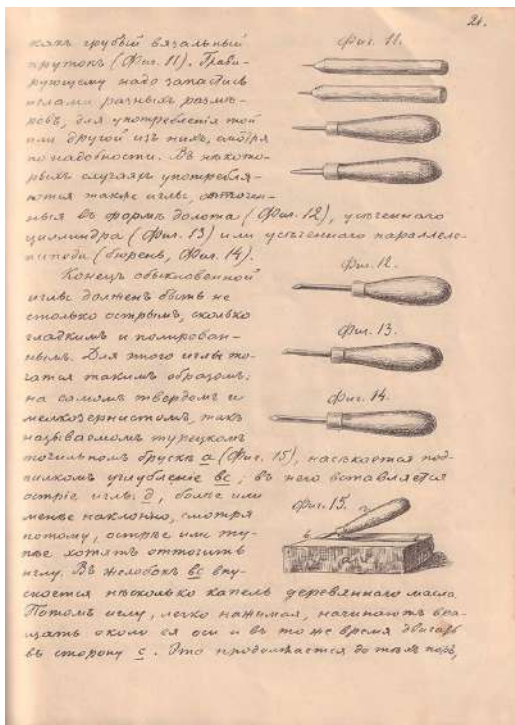 21.
какъ грубый вязальный
прутокъ (Фиг. 11). Грави-
рующему надо запастись
иглами разныхъ размѣ-
ровъ, для употребленія той
или другой изъ нихъ, смотря
по надобности. Въ нѣкото-
рыхъ случаяхъ употребля-
ются также иглы, отточен-
ныя въ формѣ долота (Фиг. 12), усѣченнаго
цилиндра (Фиг. 13) или усѣченнаго параллеле-
пипеда (бюренъ, Фиг. 14).
Конецъ обыкновенной
иглы долженъ быть не
столько острымъ, сколько
гладкимъ и полирован-
нымъ. Для этого иглы то-
чатся такимъ образомъ:
на самомъ твердомъ и
мелкозернистомъ, такъ
называемомъ турецкомъ
точильномъ брускѣ а (Фиг. 15), насѣкается под-
пилкомъ углубленіе вс; въ него вставляется
остріе иглы д, болѣе или
менѣе наклонно, смотря
потому, острѣе или ту-
пѣе хотятъ отточить
иглу. Въ желобокъ вс впу-
скается нѣсколько капель деревяннаго масла.
Потомъ иглу, легко нажимая, начинаютъ вра-
щать около ея оси и въ то же время двигать
въ сторону с. Это продолжается до тѣхъ поръ,
Фиг. 11.
Фиг. 12.
Фиг. 13.
Фиг. 14.
Фиг. 15.